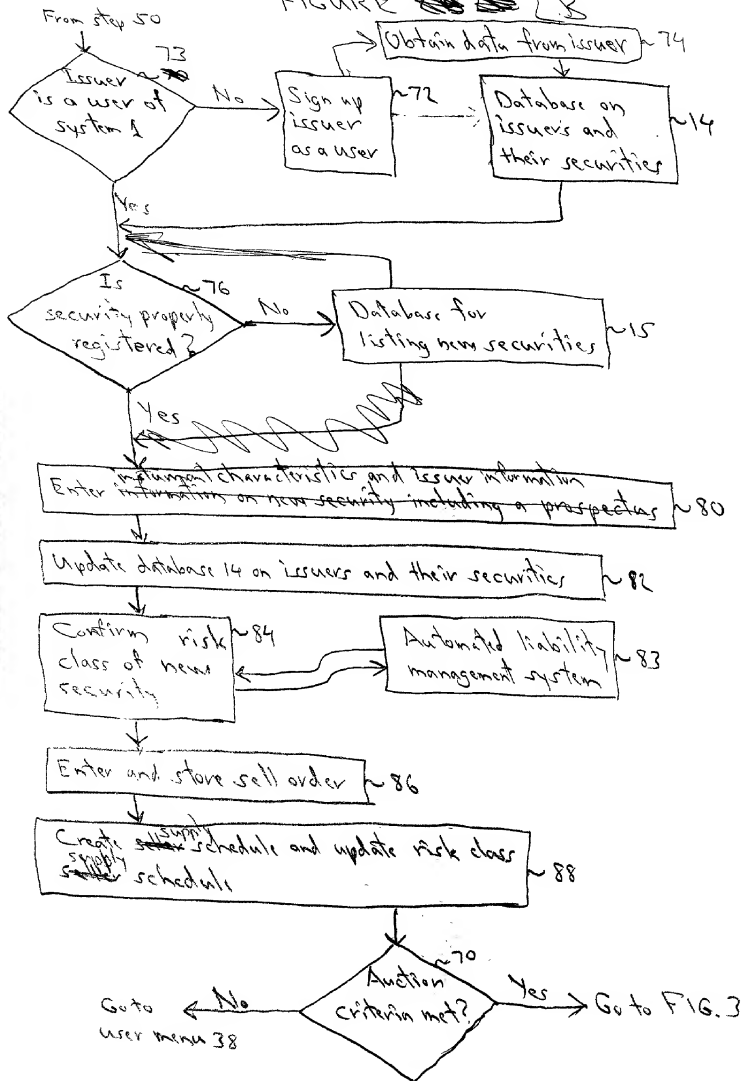 FIGURE
From step 50
Obtain data from issuer ~74
73
Issuer
is a user of
system 1
No
Sign up
issuer
as a user
~72
Database on
issuers and
their securities
~14
Yes
Is
security properly
registered?
~76
No
Database for
listing new securities
~15
Yes
instrument characteristics and issuer information
Enter information on new security including a prospectus ~80
Update database 14 on issuers and their securities ~82
Confirm risk
class of new
security
~84
Automated liability
management system
~83
Enter and store sell order ~86
supply
Create seller schedule and update risk class
supply
seller schedule
~88
~70
Auction
criteria met?
No
Go to
user menu 38
Yes
Go to FIG.3